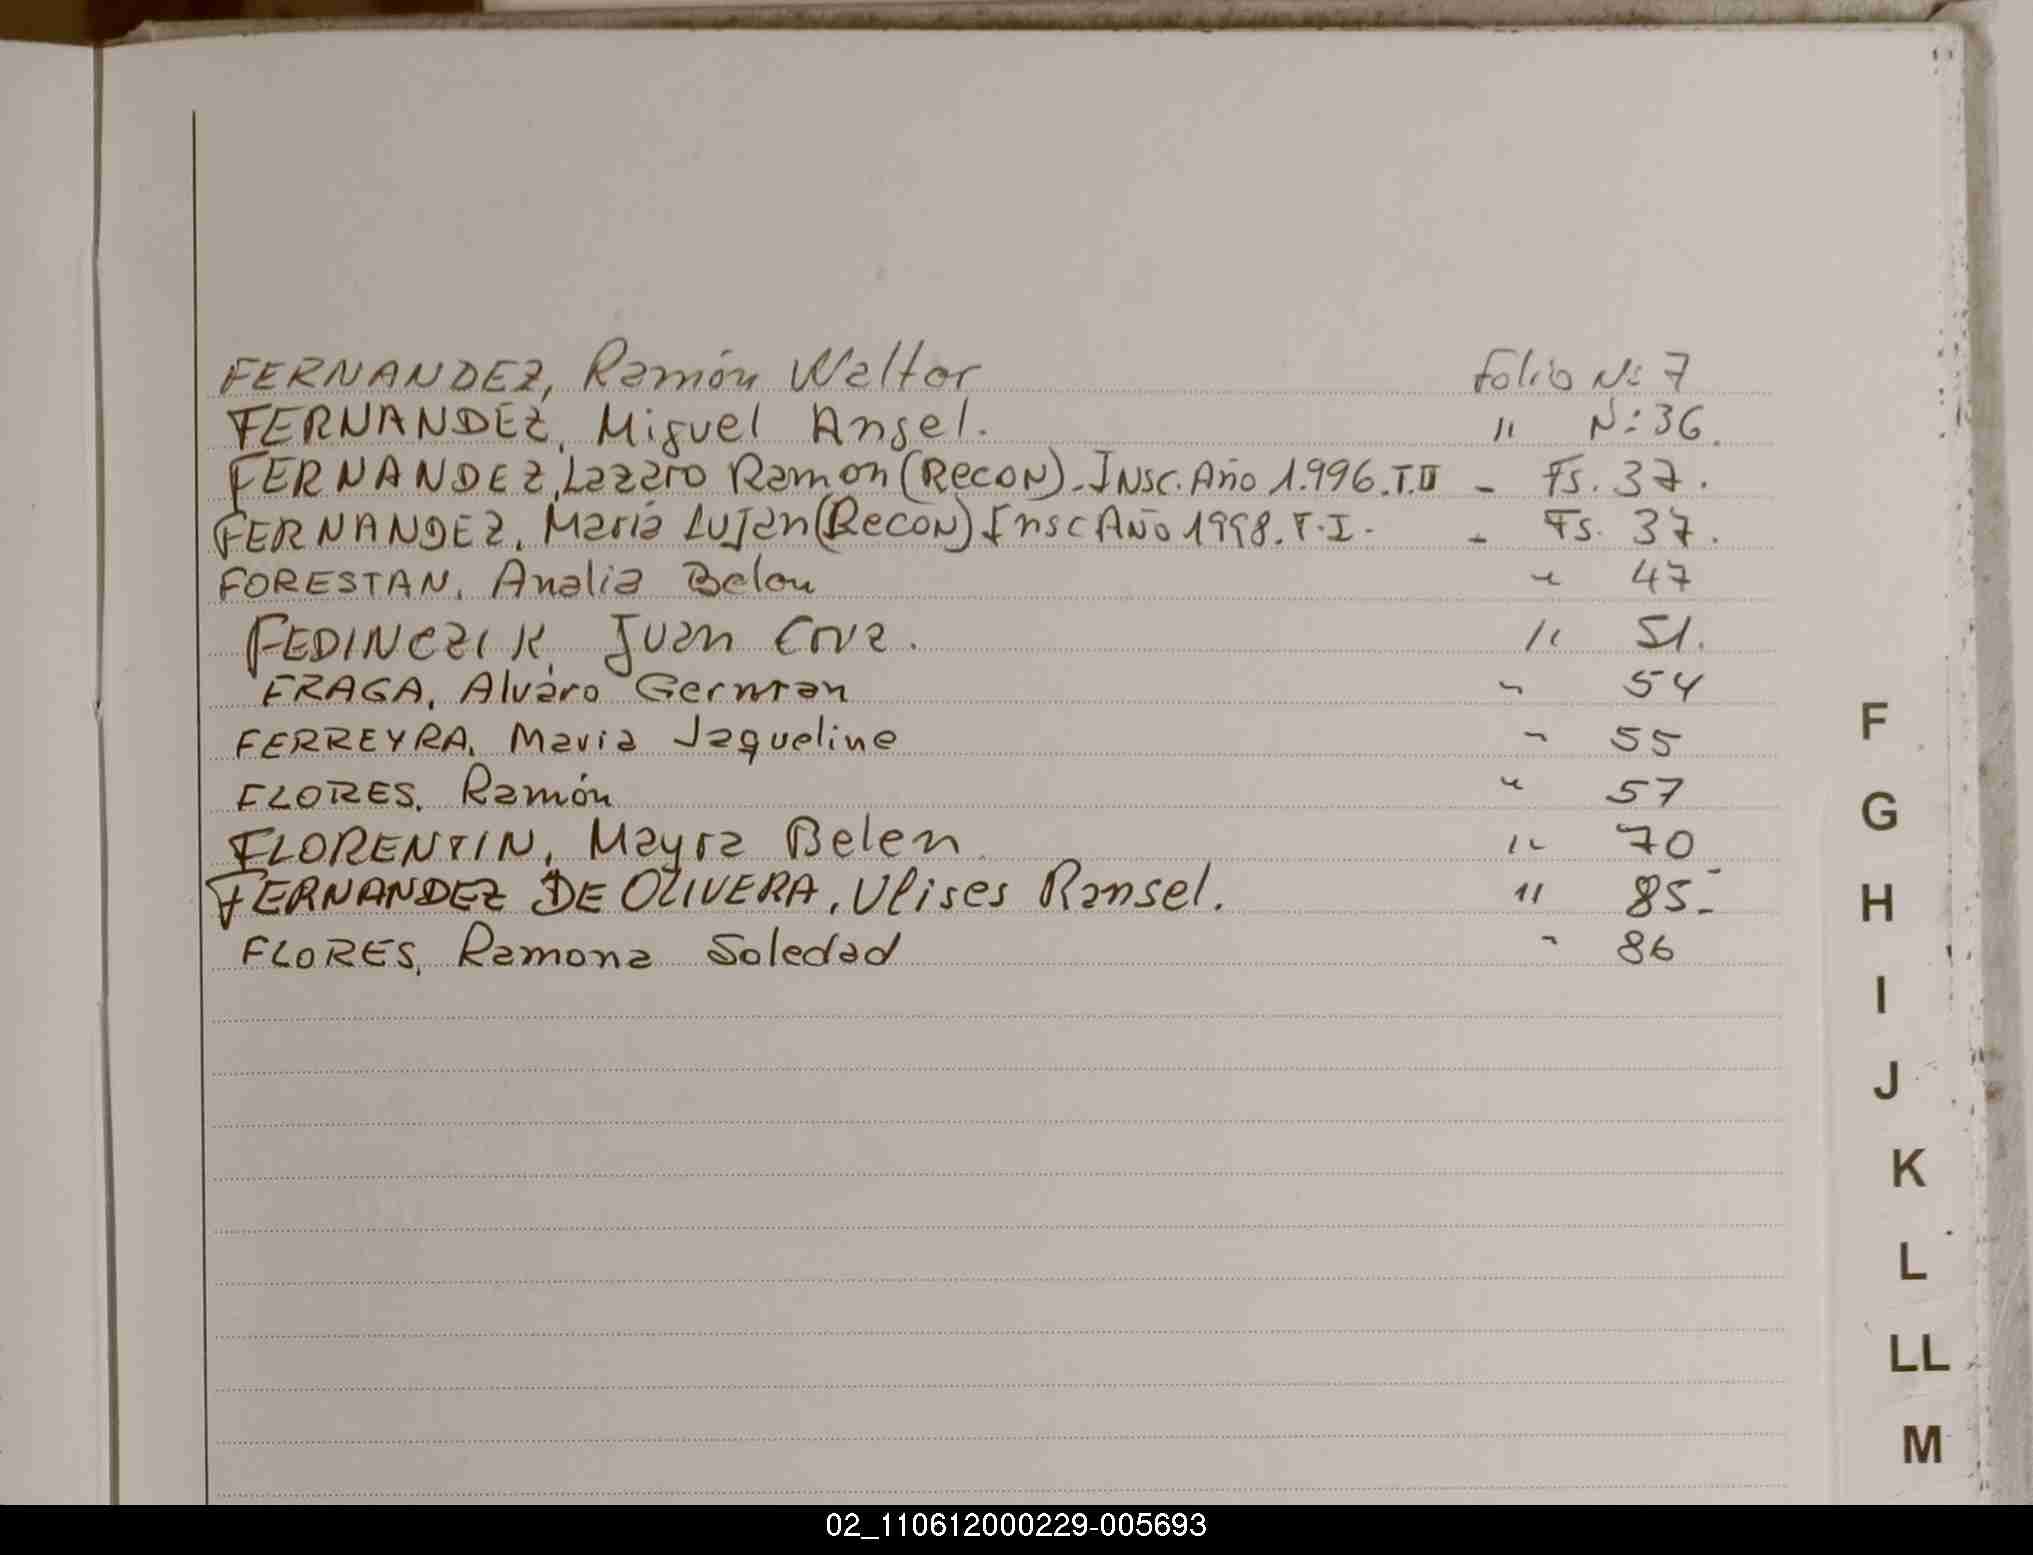 FERNANDEZ, Ramón Walter Folio Nº 7
FERNANDEZ, Miguel Angel. " Nº 36.
FERNANDEZ, Lazaro Ramon (Recon) - Insc. Año 1.996. T.II - Fs. 37.
FERNANDEZ, Maria Lujan (Recon) Insc Año 1998. T.I. - Fs. 37.
FORESTAN, Analia Belen " 47
FEDINCZIK, Juan Cruz. " 51.
FRAGA, Alvaro German " 54
FERREYRA, Maria Jaqueline " 55
FLORES, Ramón " 57
FLORENTIN, Mayra Belen " 70
FERNANDEZ DE OLIVERA, Ulises Ransel. " 85-
FLORES, Ramona Soledad " 86
F
G
H
I
J
K
L
LL
M
02_110612000229-005693